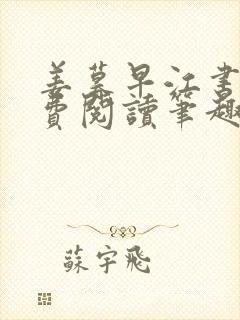 姜蓁早江書
費閱讀筆趣
蘇宇飛